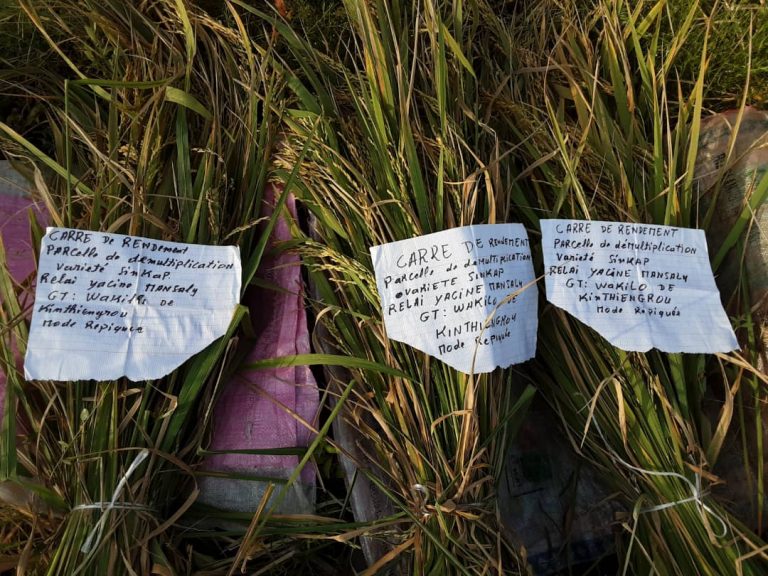 CARRE DE RENDEMENT
PARCELLE DE démultiplication
VARIETÉ SINKAP
RELAI YACINE MANSALY
GT: WAKILO DE
KINTHIENGROU
Mode Repiquée
CARRE DE RENDEMENT
PARCELLE DE démultiplication
VARIETE SINKAP
RELAI YACINE MANSALY
GT: WAKILO DE
KINTHIENGROU
Mode Repiquée
CARRE DE RENDEMENT
PARCELLO de démultiplication
VARIETÉ SINKAP
RELAI YACINE MANSALY
GT: WAKILO DE
KINTHIENGROU
Mode Repiqué